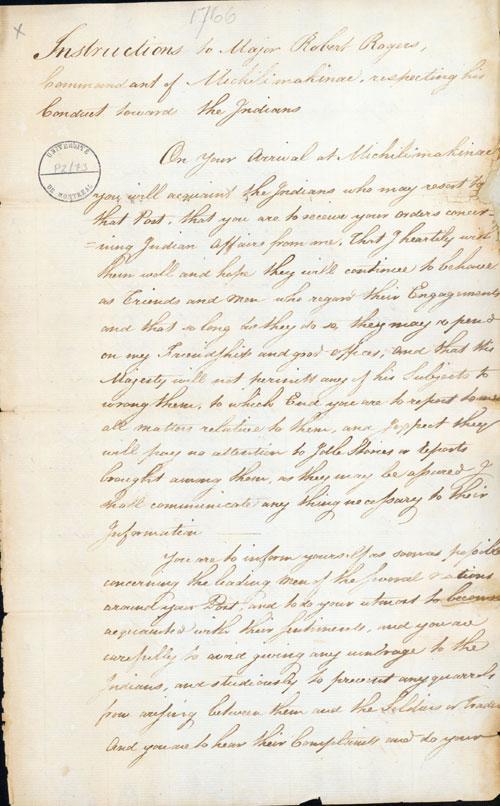 1766
x
Instructions to Major Robert Rogers,
Commandant of Michilimakinac, respecting his
Conduct towards the Indians
UNIVERSITÉ
P2/73
DE MONTRÉAL
On Your Arrival at Michilimakinac
you will acquaint the Indians who may resort to
that Post, that you are to receive your orders concer
=ning Indian Affairs from me, That I heartily wish
them well and hope they will continue to behave
as Friends and Men who regard their Engagements
and that so long as they do so they may depend
on my Friendship and good offices, and that His
Majesty will not permitt any of his Subjects to
wrong them, to which End you are to report to me
all matters relative to them, and I expect they
will pay no attention to Idle Stories or reports
brought among them, as they may be assured I
shall communicate any thing necessary to their
Information
You are to inform yourself as soon as possible
concerning the leading Men of the several Nations
around your Post, and to do your utmost to become
acquainted with their Sentiments, and you are
carefully to avoid giving any umbrage to the
Indians, and studiously to prevent any quarrels
from arising between them and the Soldiers or Traders
And you are to hear their Complaints and do your